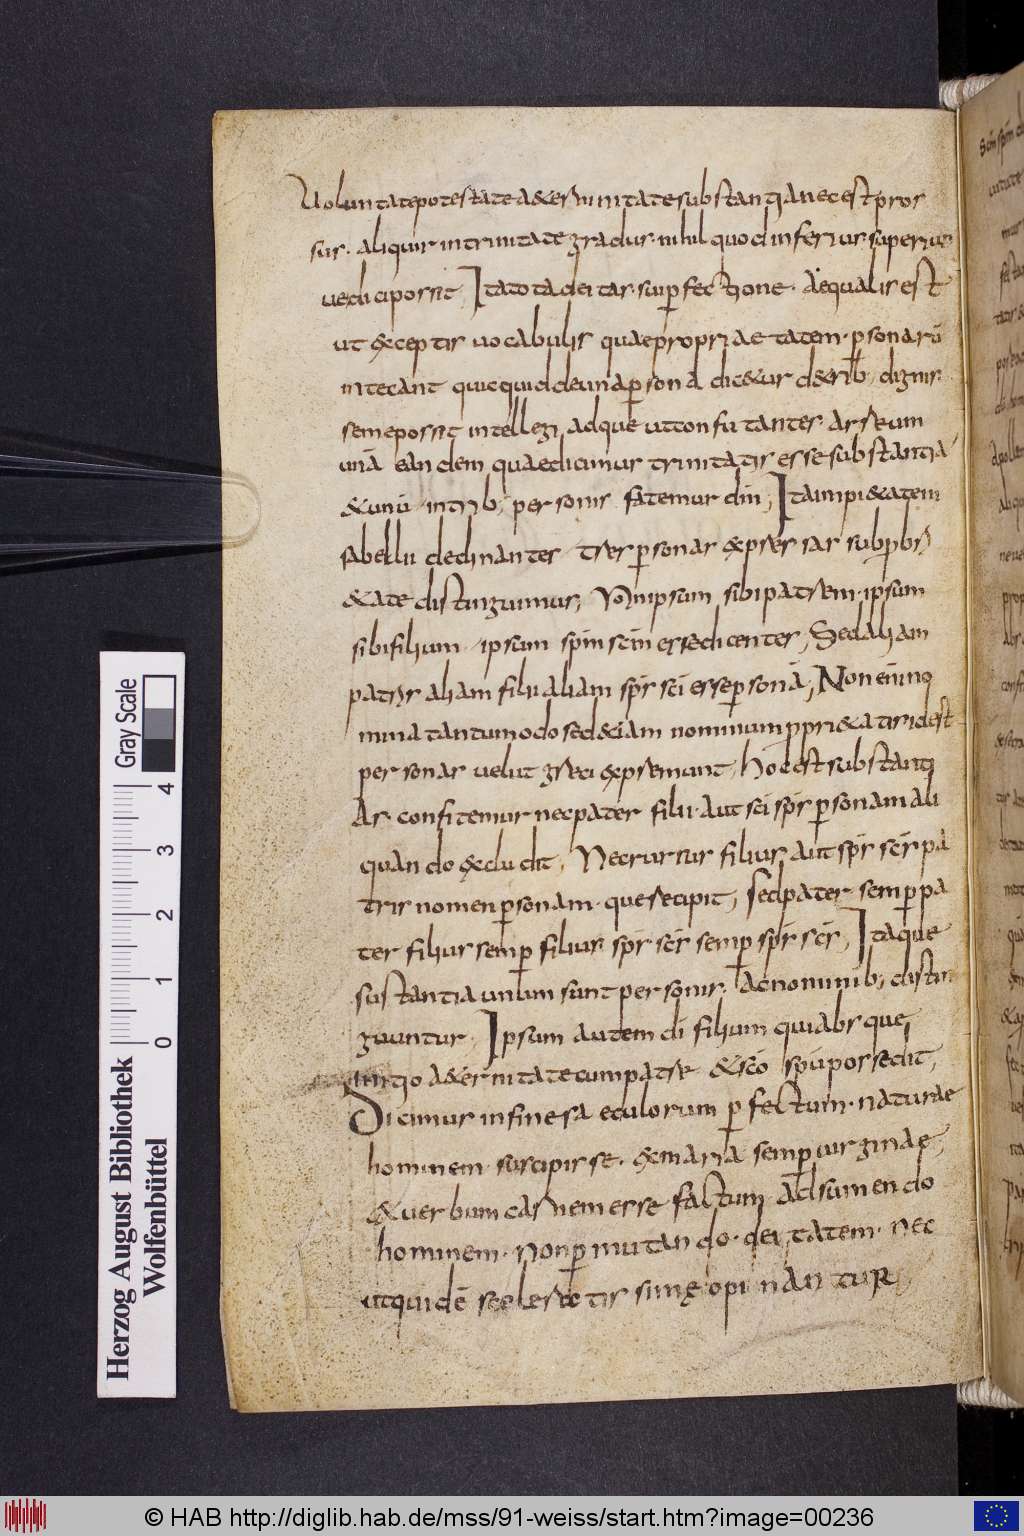 Voluntate potestate aeternitate substantia nec est pror
sus. aliquis in trinitate gradus. nihil quod inferius. superius
ue dici possit, Ita tota deitas. sui pfectione. Aequalis est
ut exceptis uocabulis quae propriaetatem. psonarū
in tecant quicquid de una psona dicitur de trib; dignis
seme possit intellegi, adque ut confutantes. arrium
unā eandem, quae dicimus trinitatis esse substantia
& unū in trib; personis fatemur dm̄, Ita impi&atem
sabellii declinantes tres psonas expressas sub pprie
&ate distinguimus, Non ipsum sibi patrem. ipsum
sibi filium. ipsum spm̄ scm̄ esse dicentes, Sed aliam
patris aliam filii aliam sps̄ sci esse psonā, Non enim no
mina tantummodo sed &iam nominum ppri&atis id est
personas uelut greci exprimunt, hoc est substanti
As. confitemur nec pater filii. Aut sci sps̄ psonam ali
quando excludit, Nec rursus filius aut sps̄ scs̄ pa
tris nomen psonam. que recipit, sed pater semp pa
ter filius semp filius. sps̄ scs̄ semp sps̄ scs̄, Itaque
sustantia unum sunt personis. Ac nominib; distin
guuntur. Ipsum autem di filium qui absque,
initio aeternitate cum patre & scō spū possedit,
Dicimus in fine saeculorum pfectum. naturae
hominem. suscipisse. ex maria semp uirginae,
& uerbum carnem esse factum. Adsumendo
hominem. non pmutando. deitatem. nec
ut quidē scelestis simę opinantur,
Herzog August Bibliothek
Wolfenbüttel
Gray Scale
0 1 2 3 4
© HAB http://diglib.hab.de/mss/91-weiss/start.htm?image=00236